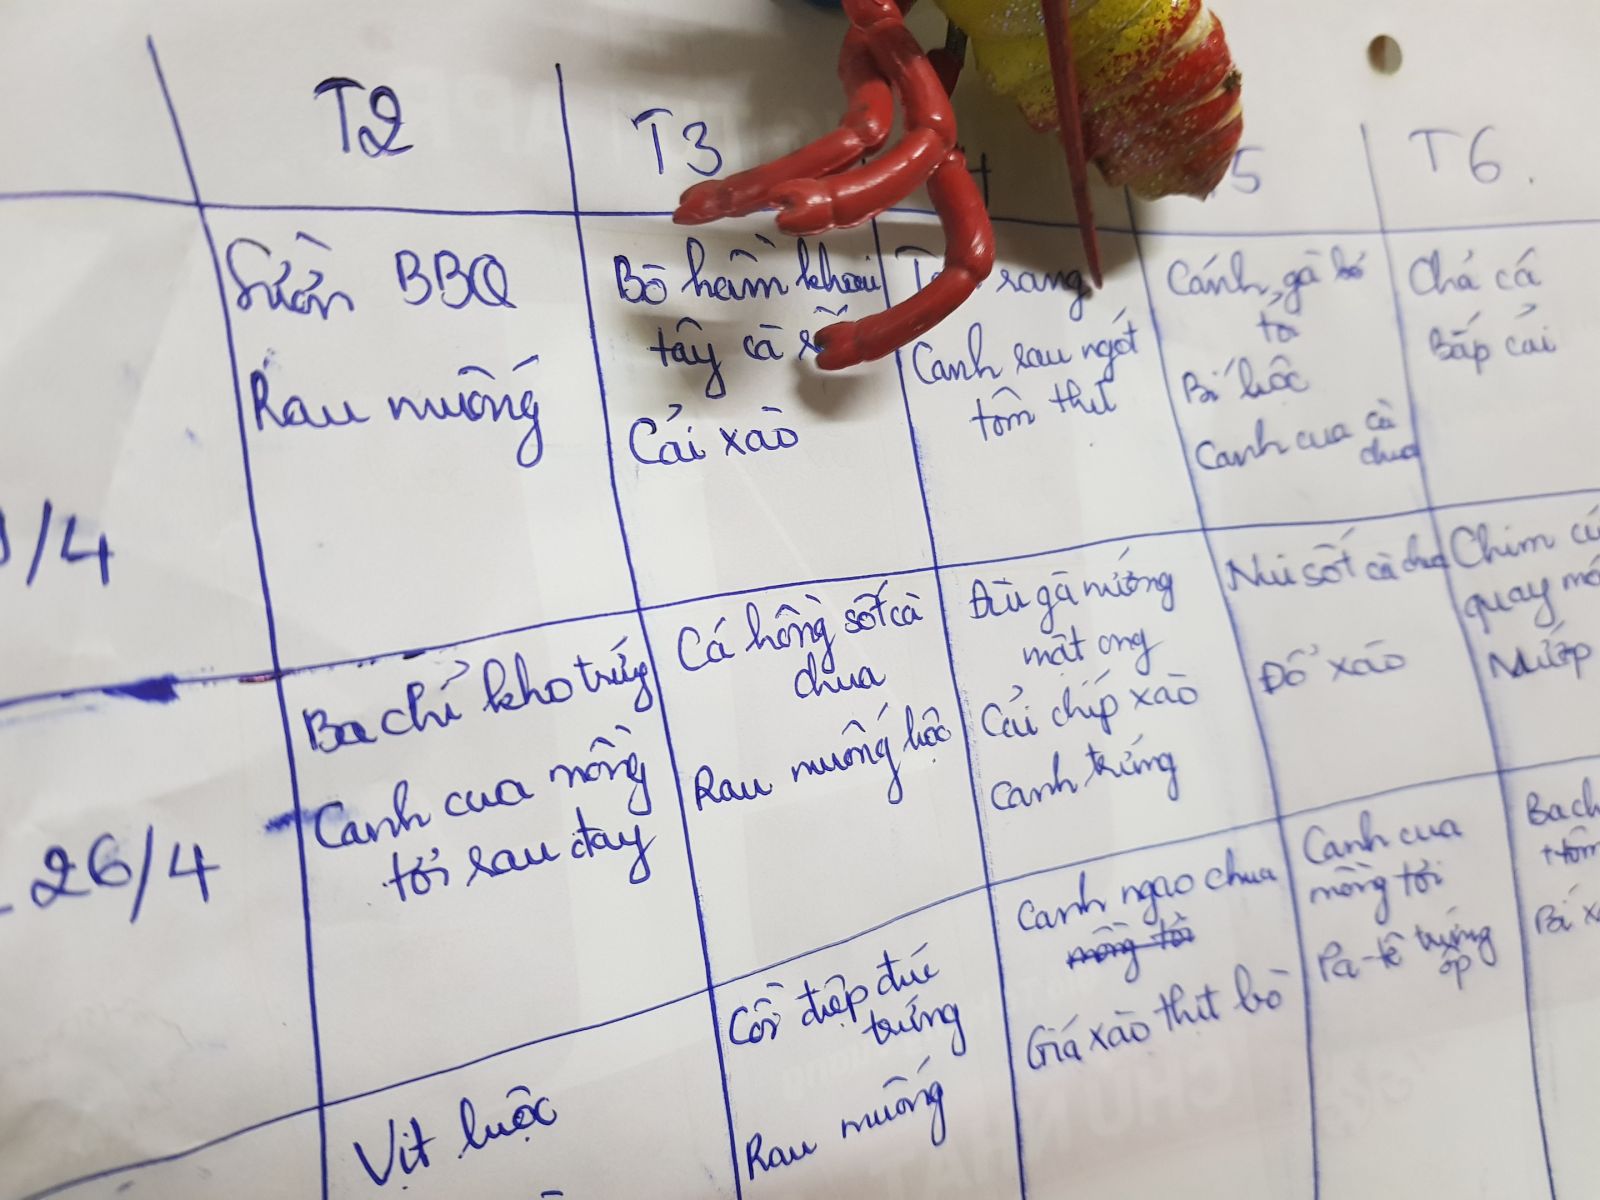 T2
T3
5
T6
Sườn BBQ
Rau muống
Bò hầm khoai
tây cà
Cải xào
rang
Canh rau ngót
tôm thịt
Cánh gà bó
tỏi
Bí luộc
Canh cua cà
chua
Chả cá
Bắp cải
/4
Ba chỉ kho trứng
Canh cua mồng
tơi rau đay
Cá hồng sốt cà
chua
Rau muống luộc
Đùi gà nướng
mật ong
Cải chíp xào
Canh trứng
Nui sốt cà chua
Đỗ xào
Chim
quay
Mướp
26/4
Vịt luộc
Cồi điệp đúc
trứng
Rau muống
Canh ngao chua
mồng tơi
Giá xào thịt bò
Canh cua
mồng tơi
Pa-tê trứng
ốp
Bach
tôm
Bí x